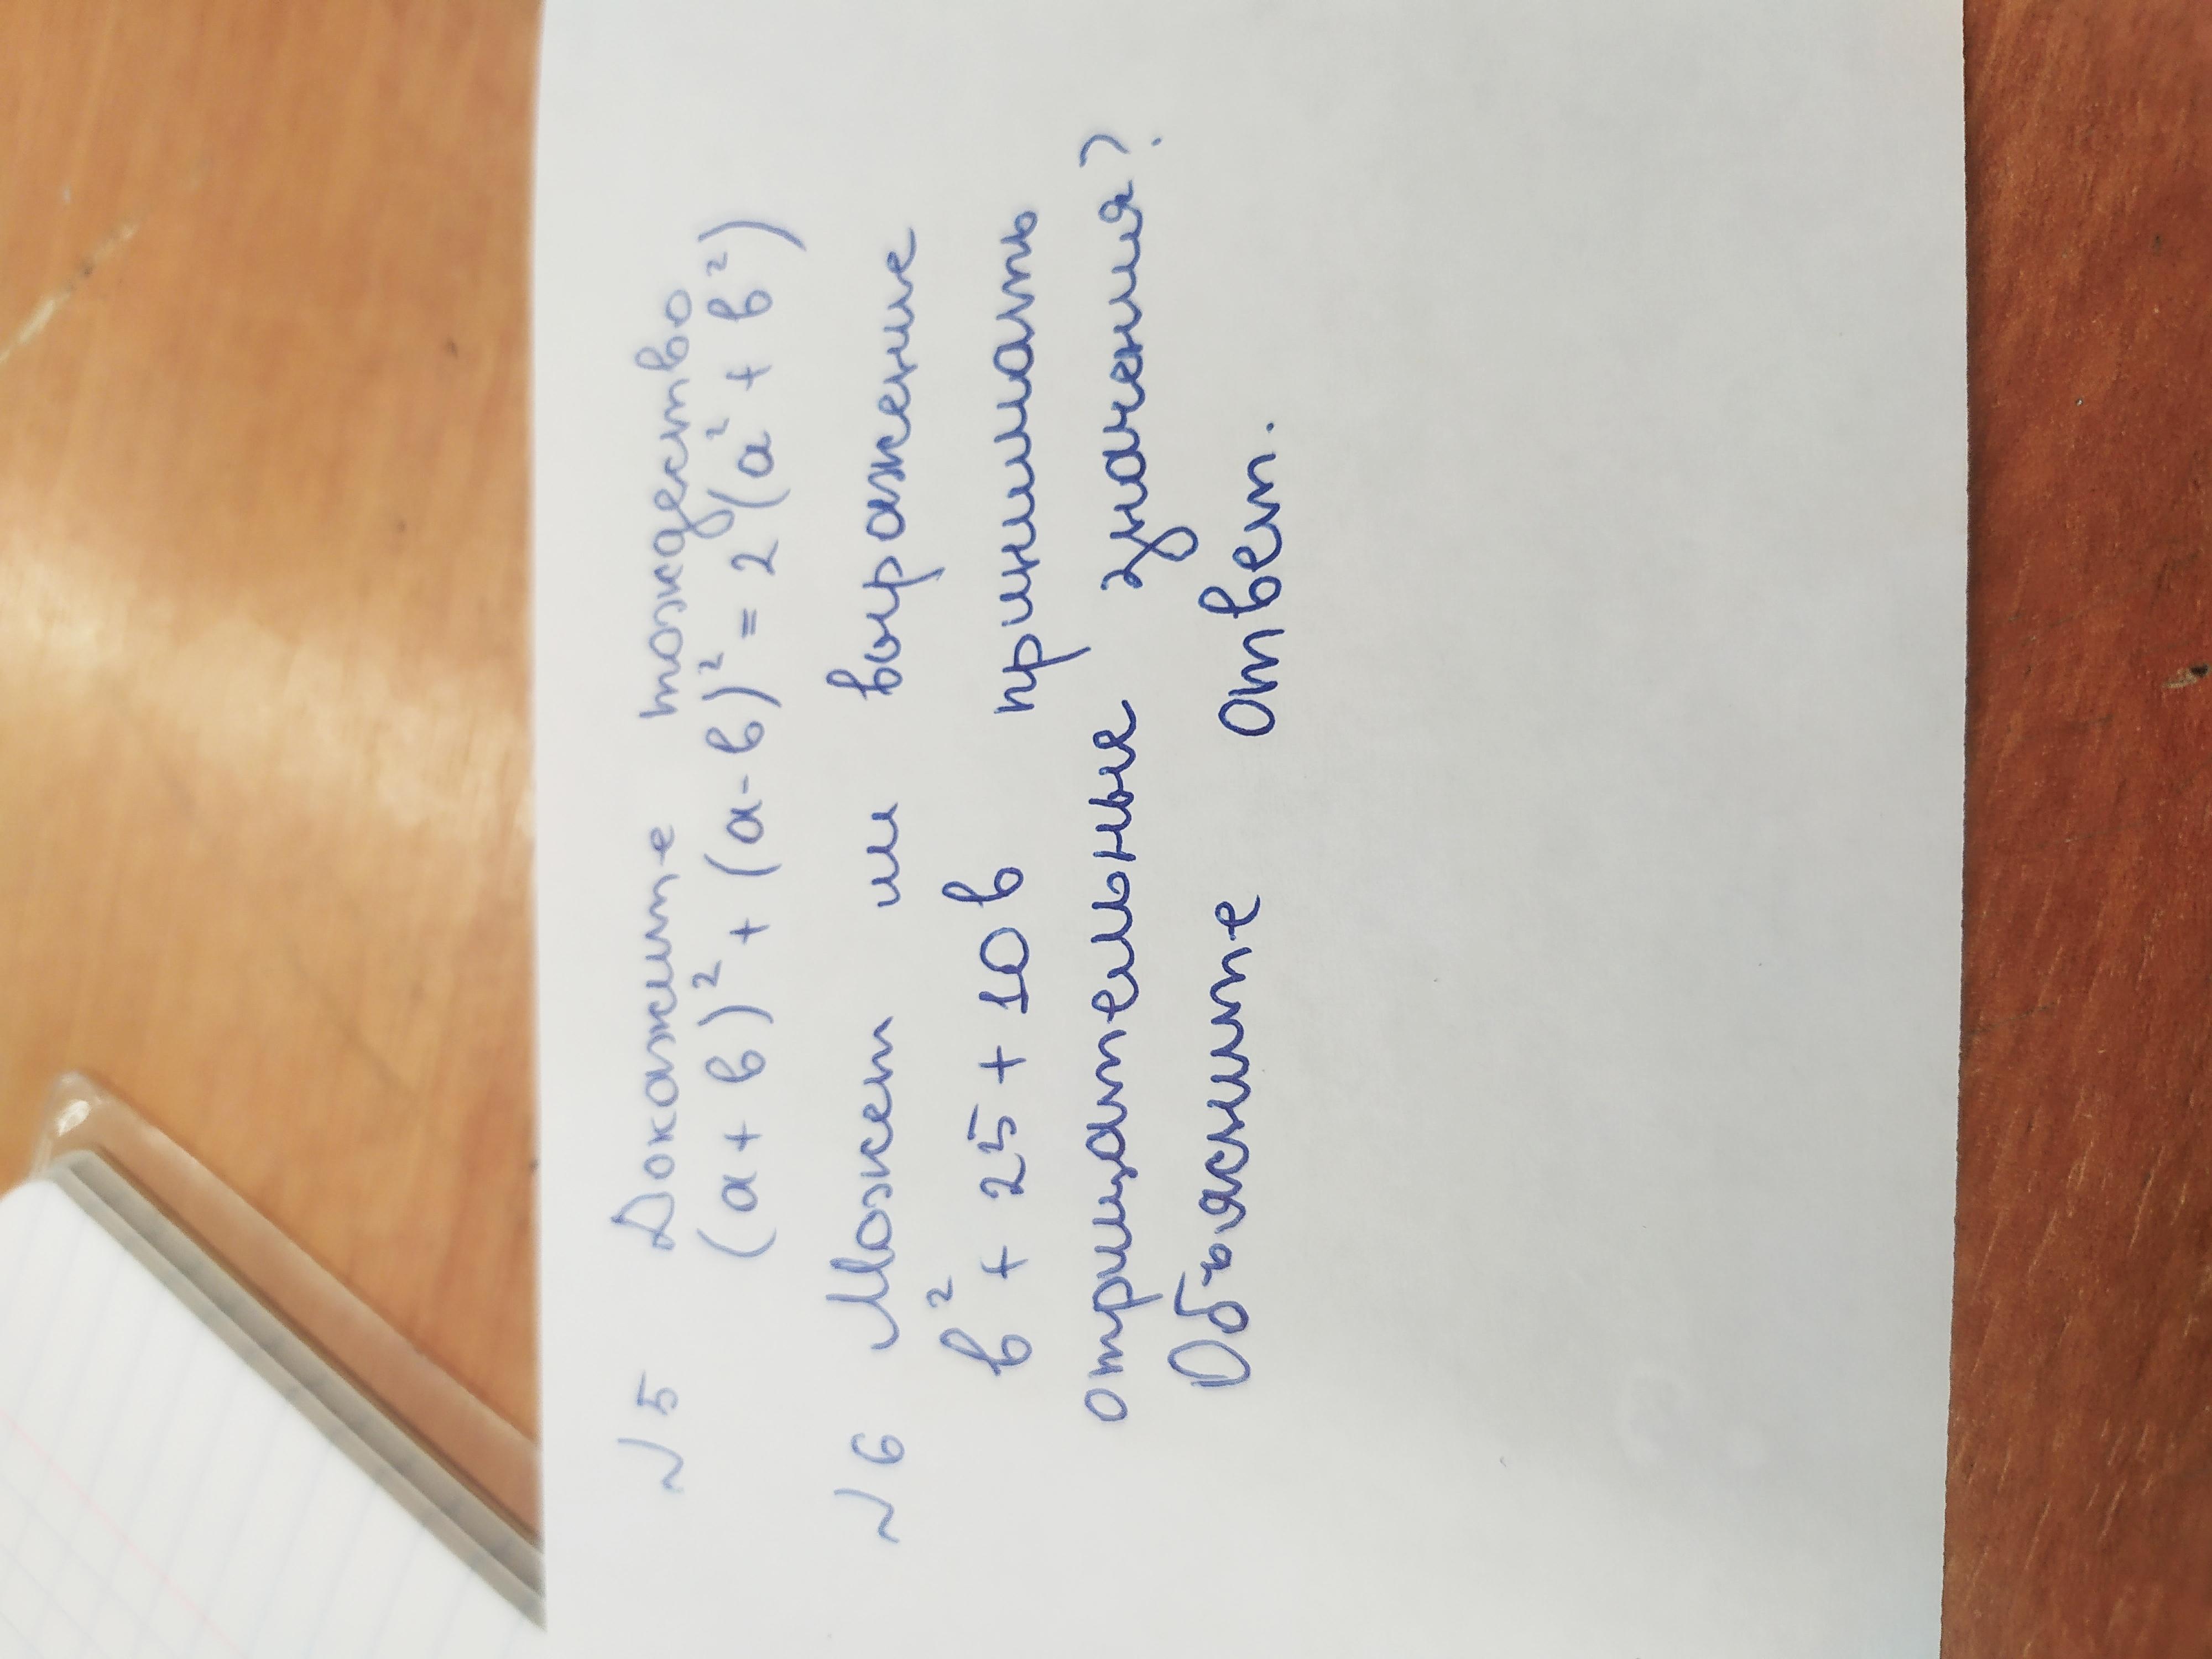 №5 Докажите тождество
(a + b)² + (a - b)² = 2(a² + b²)
№6 Может ли выражение
b² + 25 + 10b принимать
отрицательные значения?
Объясните ответ.